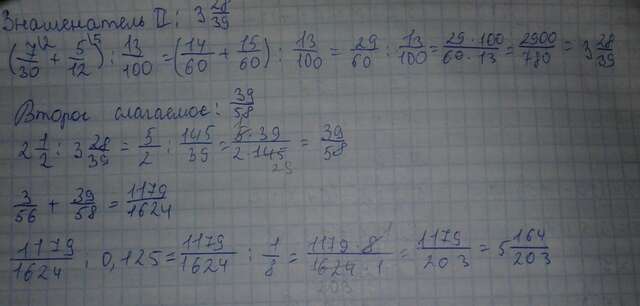 Знаменатель II: 3 28/39
(7/30 \2 + 5/12 \5) : 13/100 = (14/60 + 15/60) : 13/100 = 29/60 : 13/100 = 29·100/60·13 = 2900/780 = 3 28/39
Второе слагаемое: 39/58
2 1/2 : 3 28/39 = 5/2 : 145/39 = 5·39/2·145 29 = 39/58
3/56 + 39/58 = 1179/1624
1179/1624 : 0,125 = 1179/1624 : 1/8 = 1179·8/1624·1 203 = 1179/203 = 5 164/203